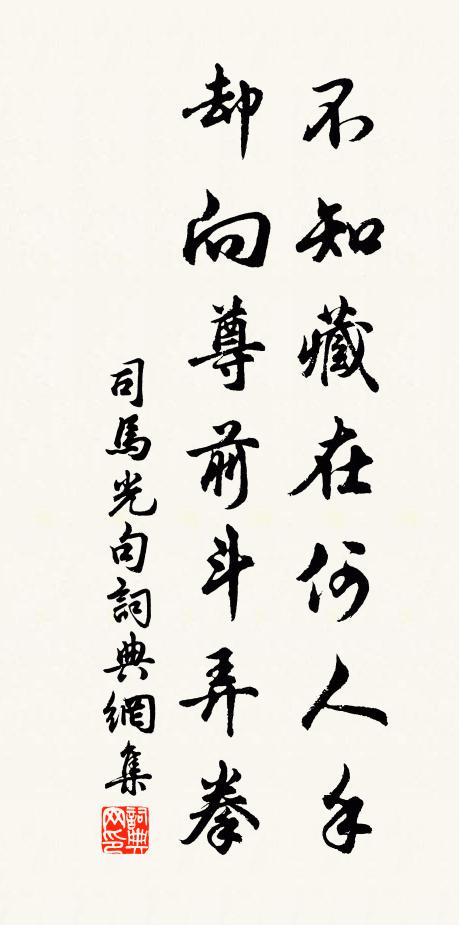 不知藏在何人手
却向尊前斗弄拳
司馬光句詞典網集
詞典
网印